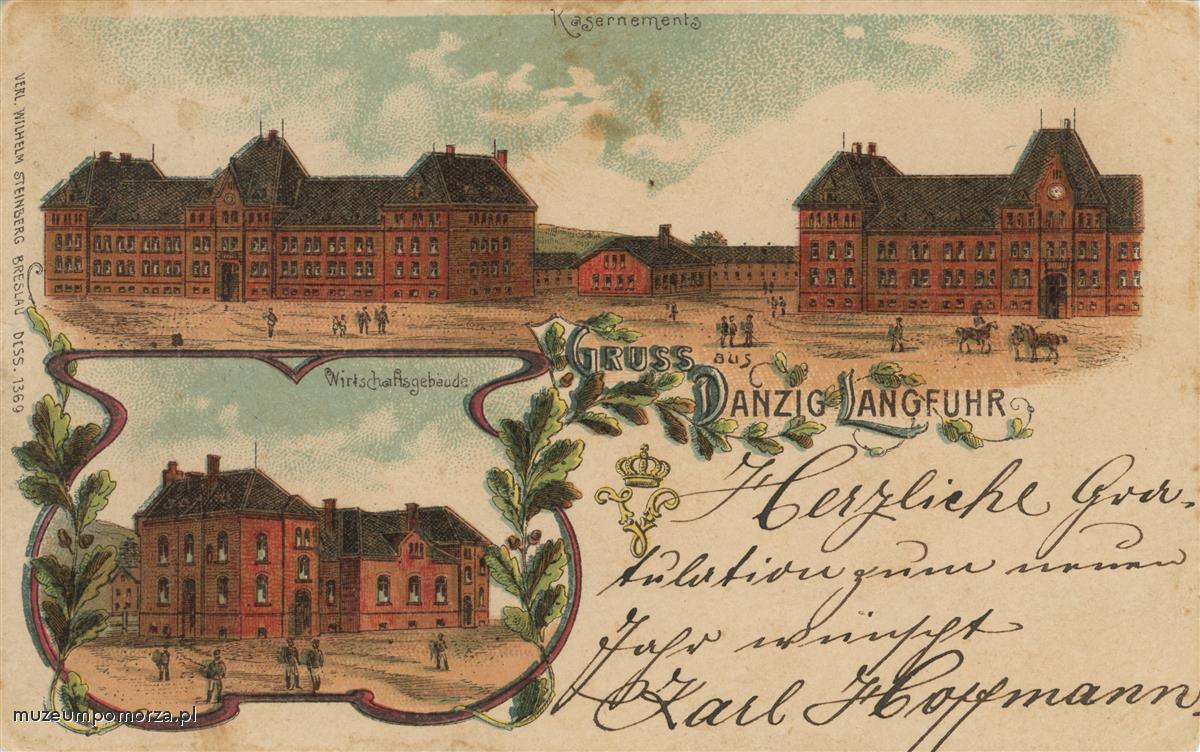 Kasernements
VERL. WILHELM STEINBERG BRESLAU DESS. 1369
Wirtschaftsgebäude
GRUSS aus
DANZIG LANGFUHR
Herzliche Gra-
tulation zum neuen
Jahr wünscht
Karl Hoffmann.
muzeumpomorza.pl